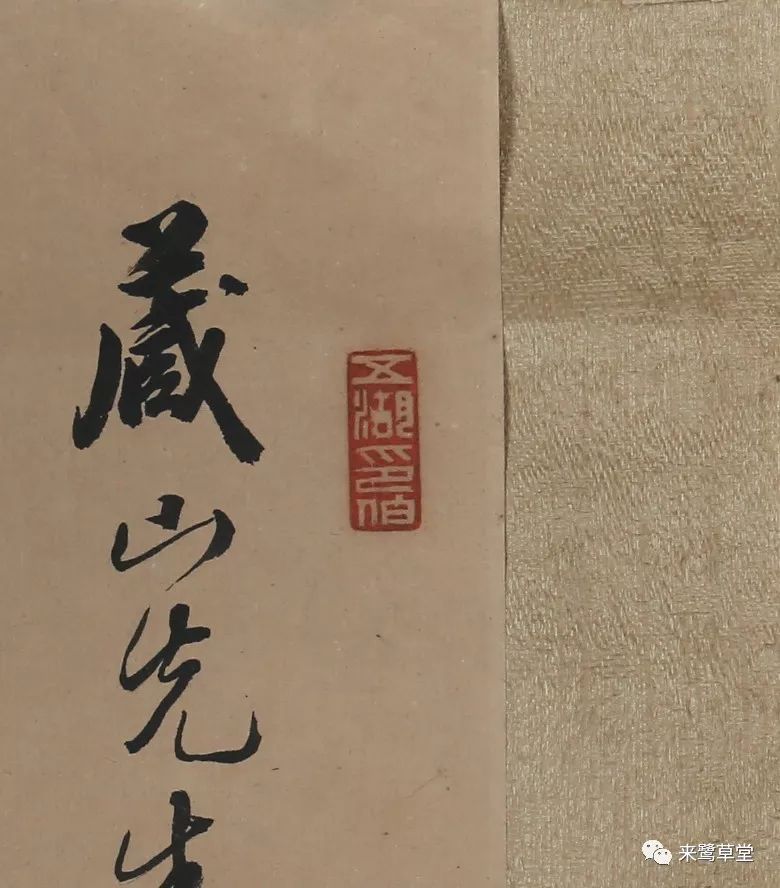 五湖印伯
藏山先生
来鹭草堂